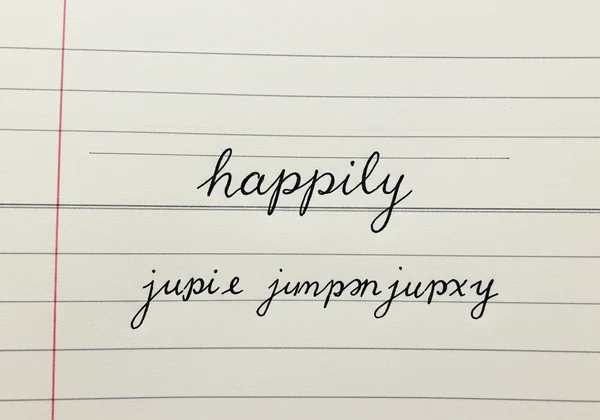 happily
jupie jumpɔn jupxy